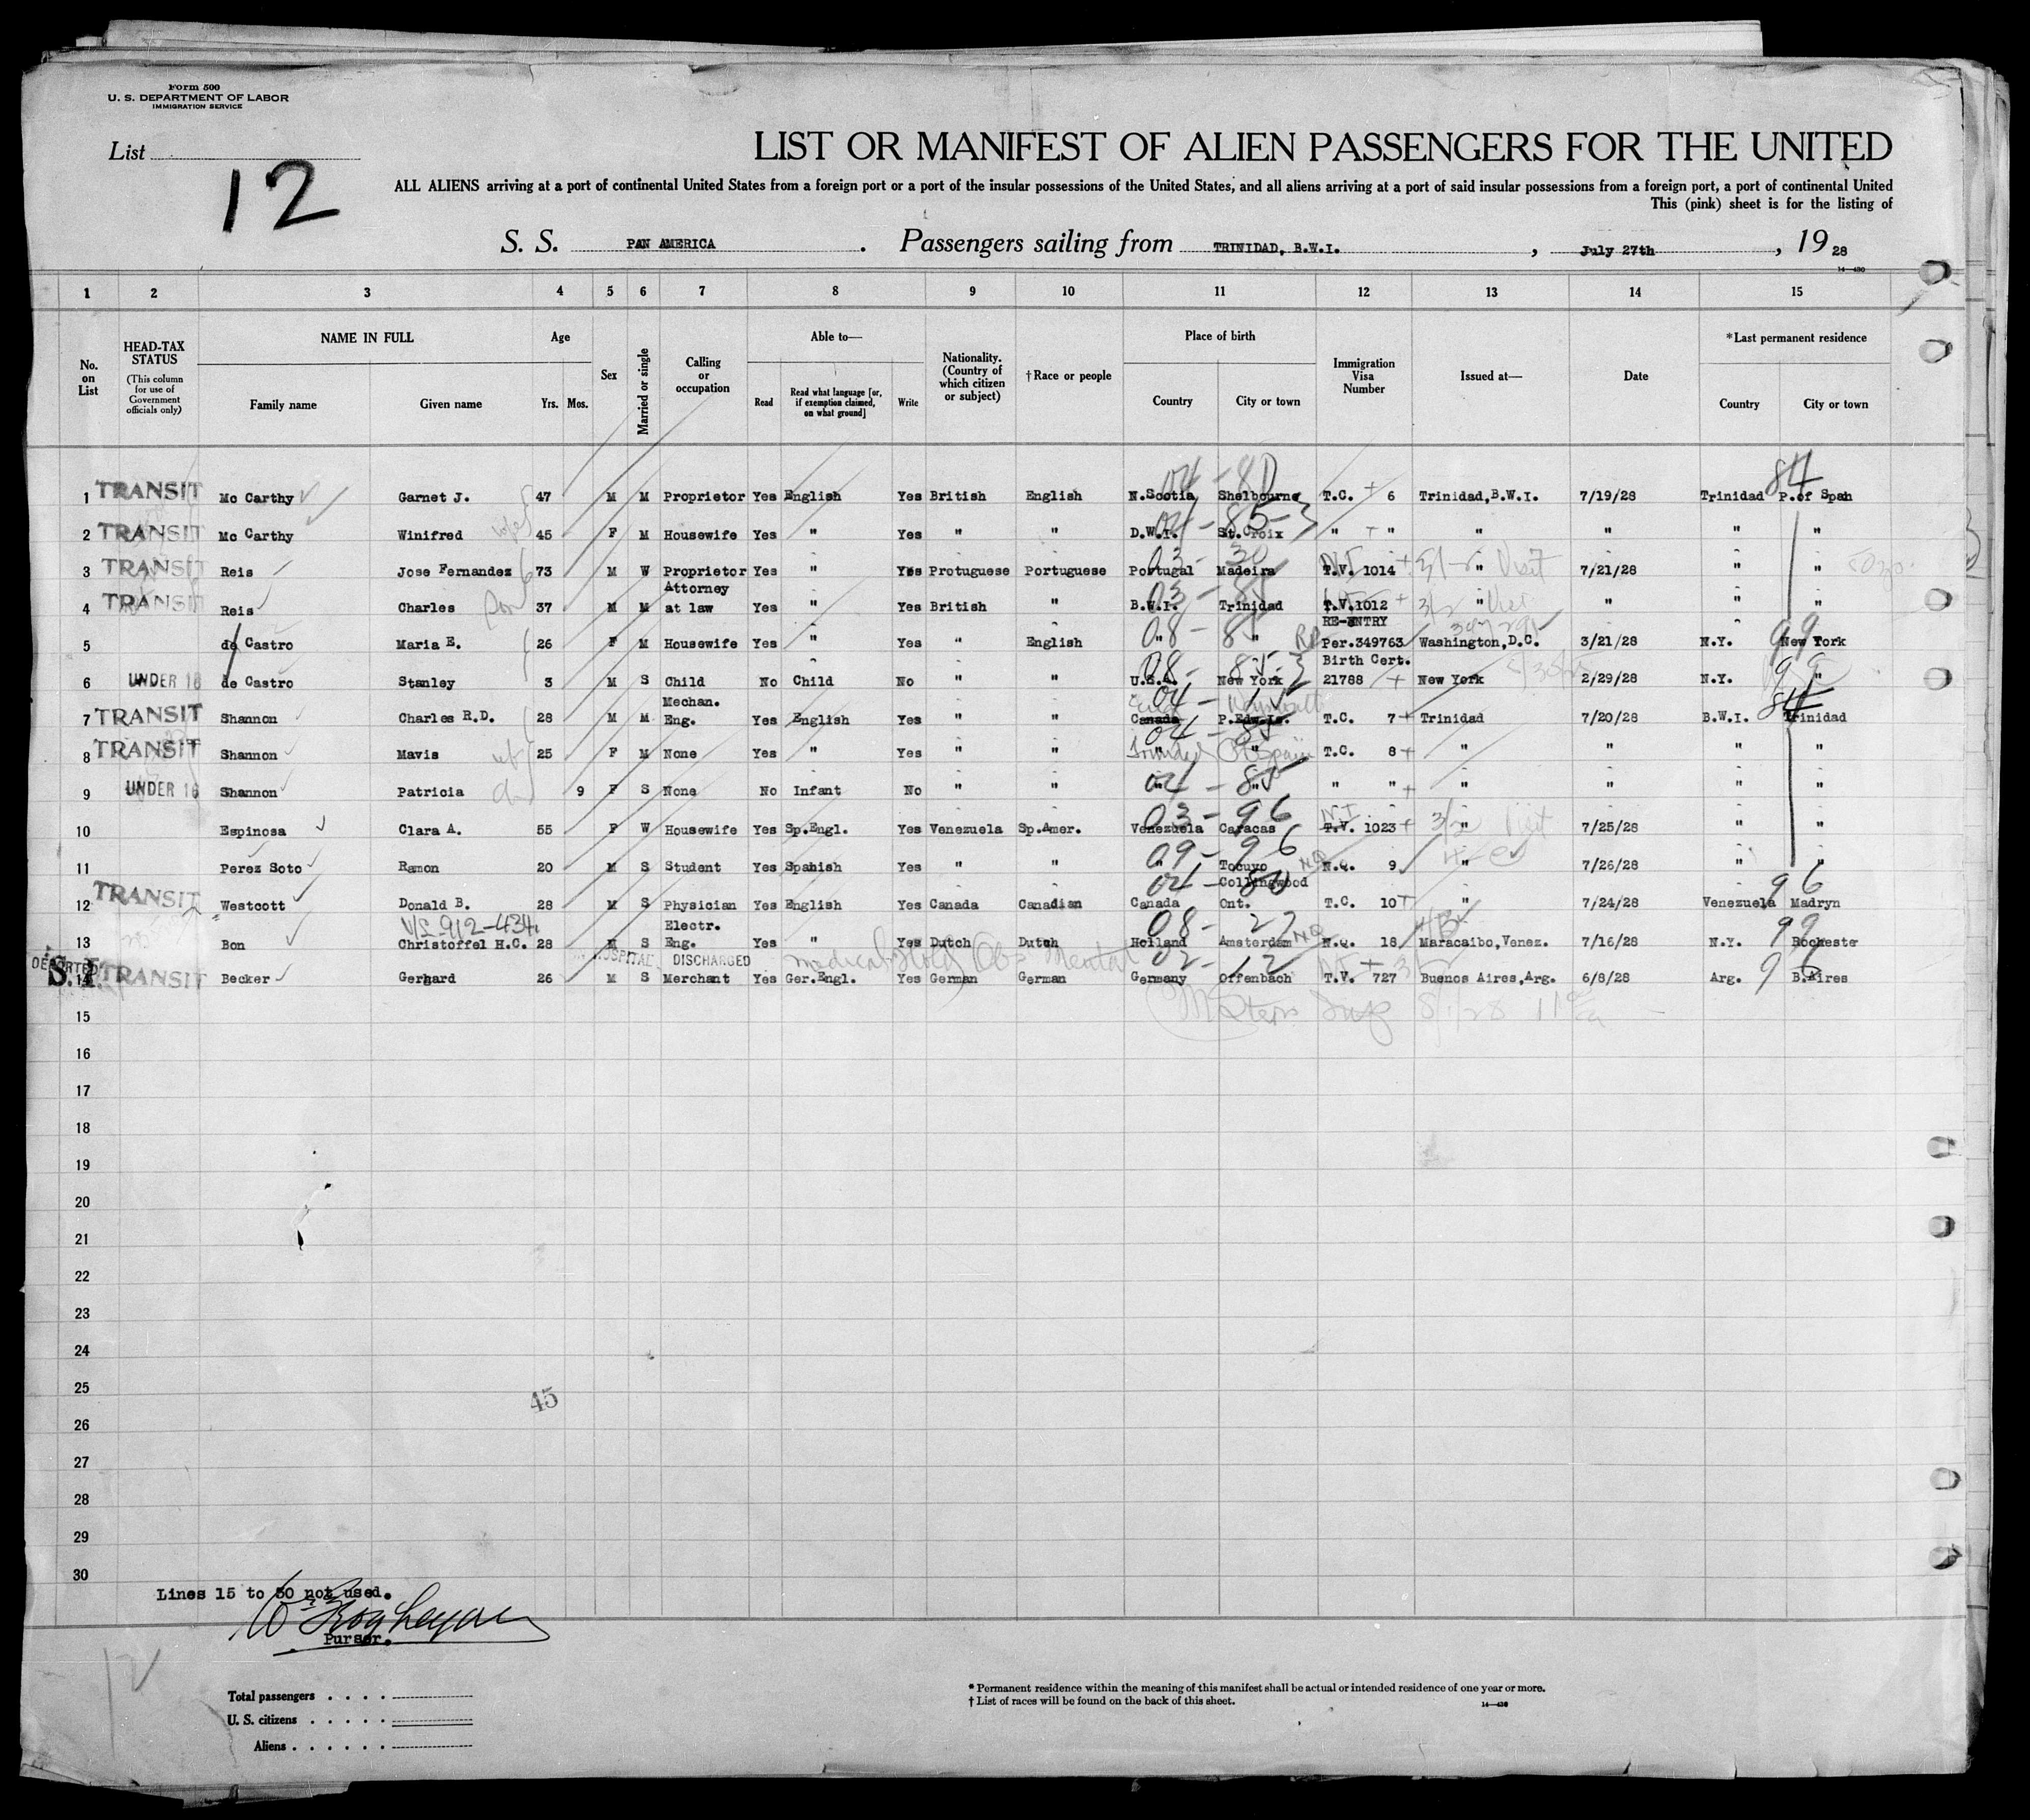 Form 500
U. S. DEPARTMENT OF LABOR
IMMIGRATION SERVICE
List
12
LIST OR MANIFEST OF ALIEN PASSENGERS FOR THE UNITED
ALL ALIENS arriving at a port of continental United States from a foreign port or a port of the insular possessions of the United States, and all aliens arriving at a port of said insular possessions from a foreign port, a port of continental United
This (pink) sheet is for the listing of
S. S. PAN AMERICA . Passengers sailing from TRINIDAD, B.W.I. , July 27th , 19 28
14—430
1 2 3 4 5 6 7 8 9 10 11 12 13 14 15
No. on List
HEAD-TAX STATUS (This column for use of Government officials only)
NAME IN FULL
Family name Given name
Age
Yrs. Mos.
Sex
Married or single
Calling or occupation
Able to—
Read
Read what language [or, if exemption claimed, on what ground]
Write
Nationality. (Country of which citizen or subject)
†Race or people
Place of birth
Country City or town
Immigration Visa Number
Issued at—
Date
*Last permanent residence
Country City or town
04 - 80 84
1 TRANSIT Mc Carthy Garnet J. 47 M M Proprietor Yes English Yes British English N.Scotia Shelbourne T.C. + 6 Trinidad,B.W.I. 7/19/28 Trinidad P.of Spah
04 - 85
2 TRANSIT Mc Carthy Winifred wife 45 F M Housewife Yes " Yes " " D.W.I. St.Croix " + " " " " "
03 - 30
3 TRANSIT Reis Jose Fernandez 73 M W Proprietor Yes " Yes Protuguese Portuguese Portugal Madeira T.V. 1014 + " Visit 7/21/28 " "
Attorney
03 - 85
4 TRANSIT Reis Charles Son 37 M M at law Yes " Yes British " B.W.I. Trinidad T.V.1012 + 3/2 " Visit " " "
RE-ENTRY
08 - 85 99
5 de Castro Maria E. 26 F M Housewife Yes " Yes " English " " RP Per.349763 Washington,D.C. 3/21/28 N.Y. New York
Birth Cert.
08 - 85 99
6 UNDER 16 de Castro Stanley 3 M S Child No Child No " " U.S.A. New York 21788 + New York 2/29/28 N.Y. "
Mechan.
04 84
7 TRANSIT Shannon Charles R.D. 28 M M Eng. Yes English Yes " " Canada P.Edw.Is. T.C. 7 + Trinidad 7/20/28 B.W.I. Trinidad
04 - 85
8 TRANSIT Shannon Mavis wf 25 F M None Yes " Yes " " " Trinidad " T.C. 8 + " " " "
04 - 85
9 UNDER 16 Shannon Patricia 9 F S None No Infant No " " " " " " + " " " "
03 - 96
10 Espinosa Clara A. 55 F W Housewife Yes Sp.Engl. Yes Venezuela Sp.Amer. Venezuela Caracas T.V. 1023 + 3/2 " Visit 7/25/28 " "
09 - 96
11 Perez Soto Ramon 20 M S Student Yes Spahish Yes " " " Tocuyo NQ N.Q. 9 " 7/26/28 " "
Collingwood
04 - 80 96
12 TRANSIT Westcott Donald B. 28 M S Physician Yes English Yes Canada Canadian Canada Ont. T.C. 10 " 7/24/28 Venezuela Madryn
V/L 912-434 Electr.
08 - 27 99
13 Bon Christoffel H.C. 28 M S Eng. Yes " Yes Dutch Dutch Holland Amsterdam NQ N.Q. 18 Maracaibo,Venez. 7/16/28 N.Y. Rocheste
HOSPITAL DISCHARGED Medical Hold Obs Mental
02 - 12 96
DEPORTED S.I. 14 TRANSIT Becker Gerhard 26 M S Merchant Yes Ger.Engl. Yes German German Germany Offenbach T.V. 727 Buenos Aires,Arg. 6/8/28 Arg. B.Aires
15
16
17
18
19
20
21
22
23
24
25
45
26
27
28
29
30
Lines 15 to 30 not used.
Purser.
12
Total passengers
U. S. citizens
Aliens
* Permanent residence within the meaning of this manifest shall be actual or intended residence of one year or more.
† List of races will be found on the back of this sheet.
14—430